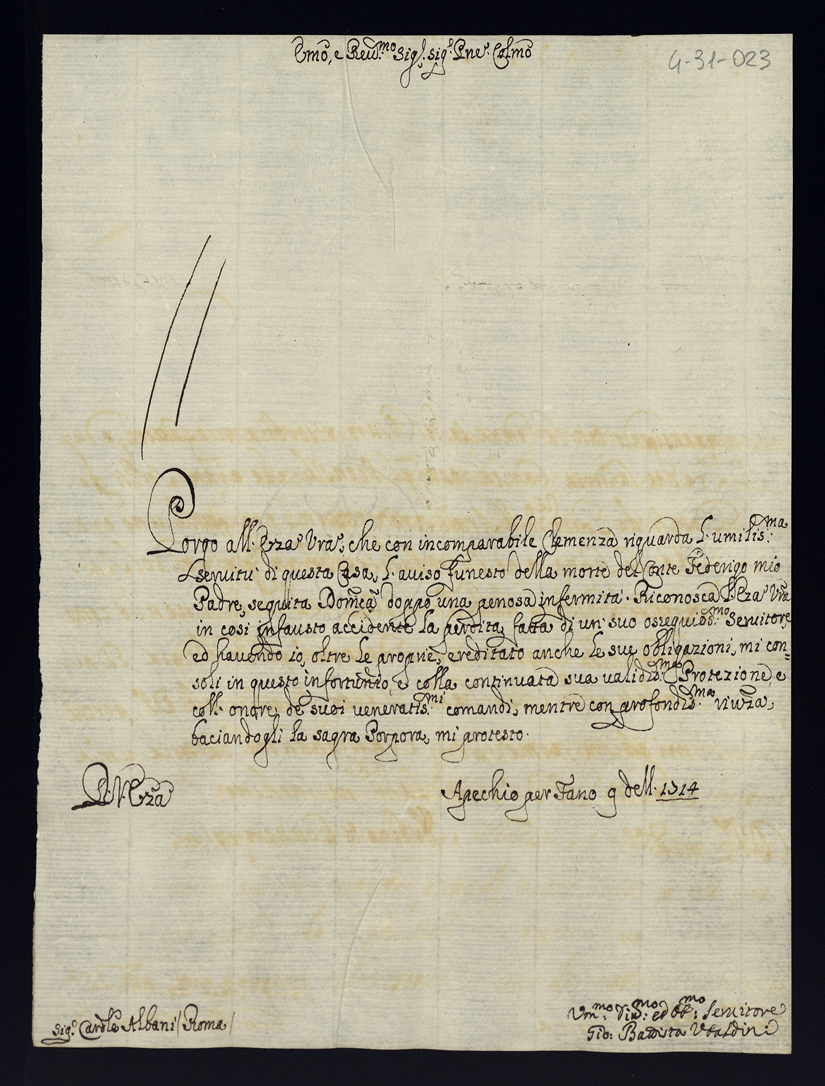 Emo, e Reud.mo Sig.r sig.r Pne. Colmo
4-31-023
Porgo all'Eza Vra, che con incomparabile Clemenza riguarda l'umilis.ma
servitù di questa Casa, l'aviso funesto della morte del Conte Federigo mio
Padre, seguita Domca doppo una penosa infermità. Riconosca l'Eza Vra
in così infausto accidente la perdita fatta di un suo ossequios.mo Servitore,
ed havendo io, oltre le proprie, ereditato anche le sue obligazioni, mi con-
soli in questo infortunio, e colla continuata sua validis.ma Protezione, e
coll'onore de suoi veneratis.mi comandi, mentre con profondis.ma riverza,
baciandogli la sagra Porpora, mi protesto.
D. V. Eza
Apechio per Fano 9 dell' 1714
Sig.r Cardle Albani / Roma /
Um.mo Di.mo ed Ob.mo Servitore
Gio: Battista Ubaldini